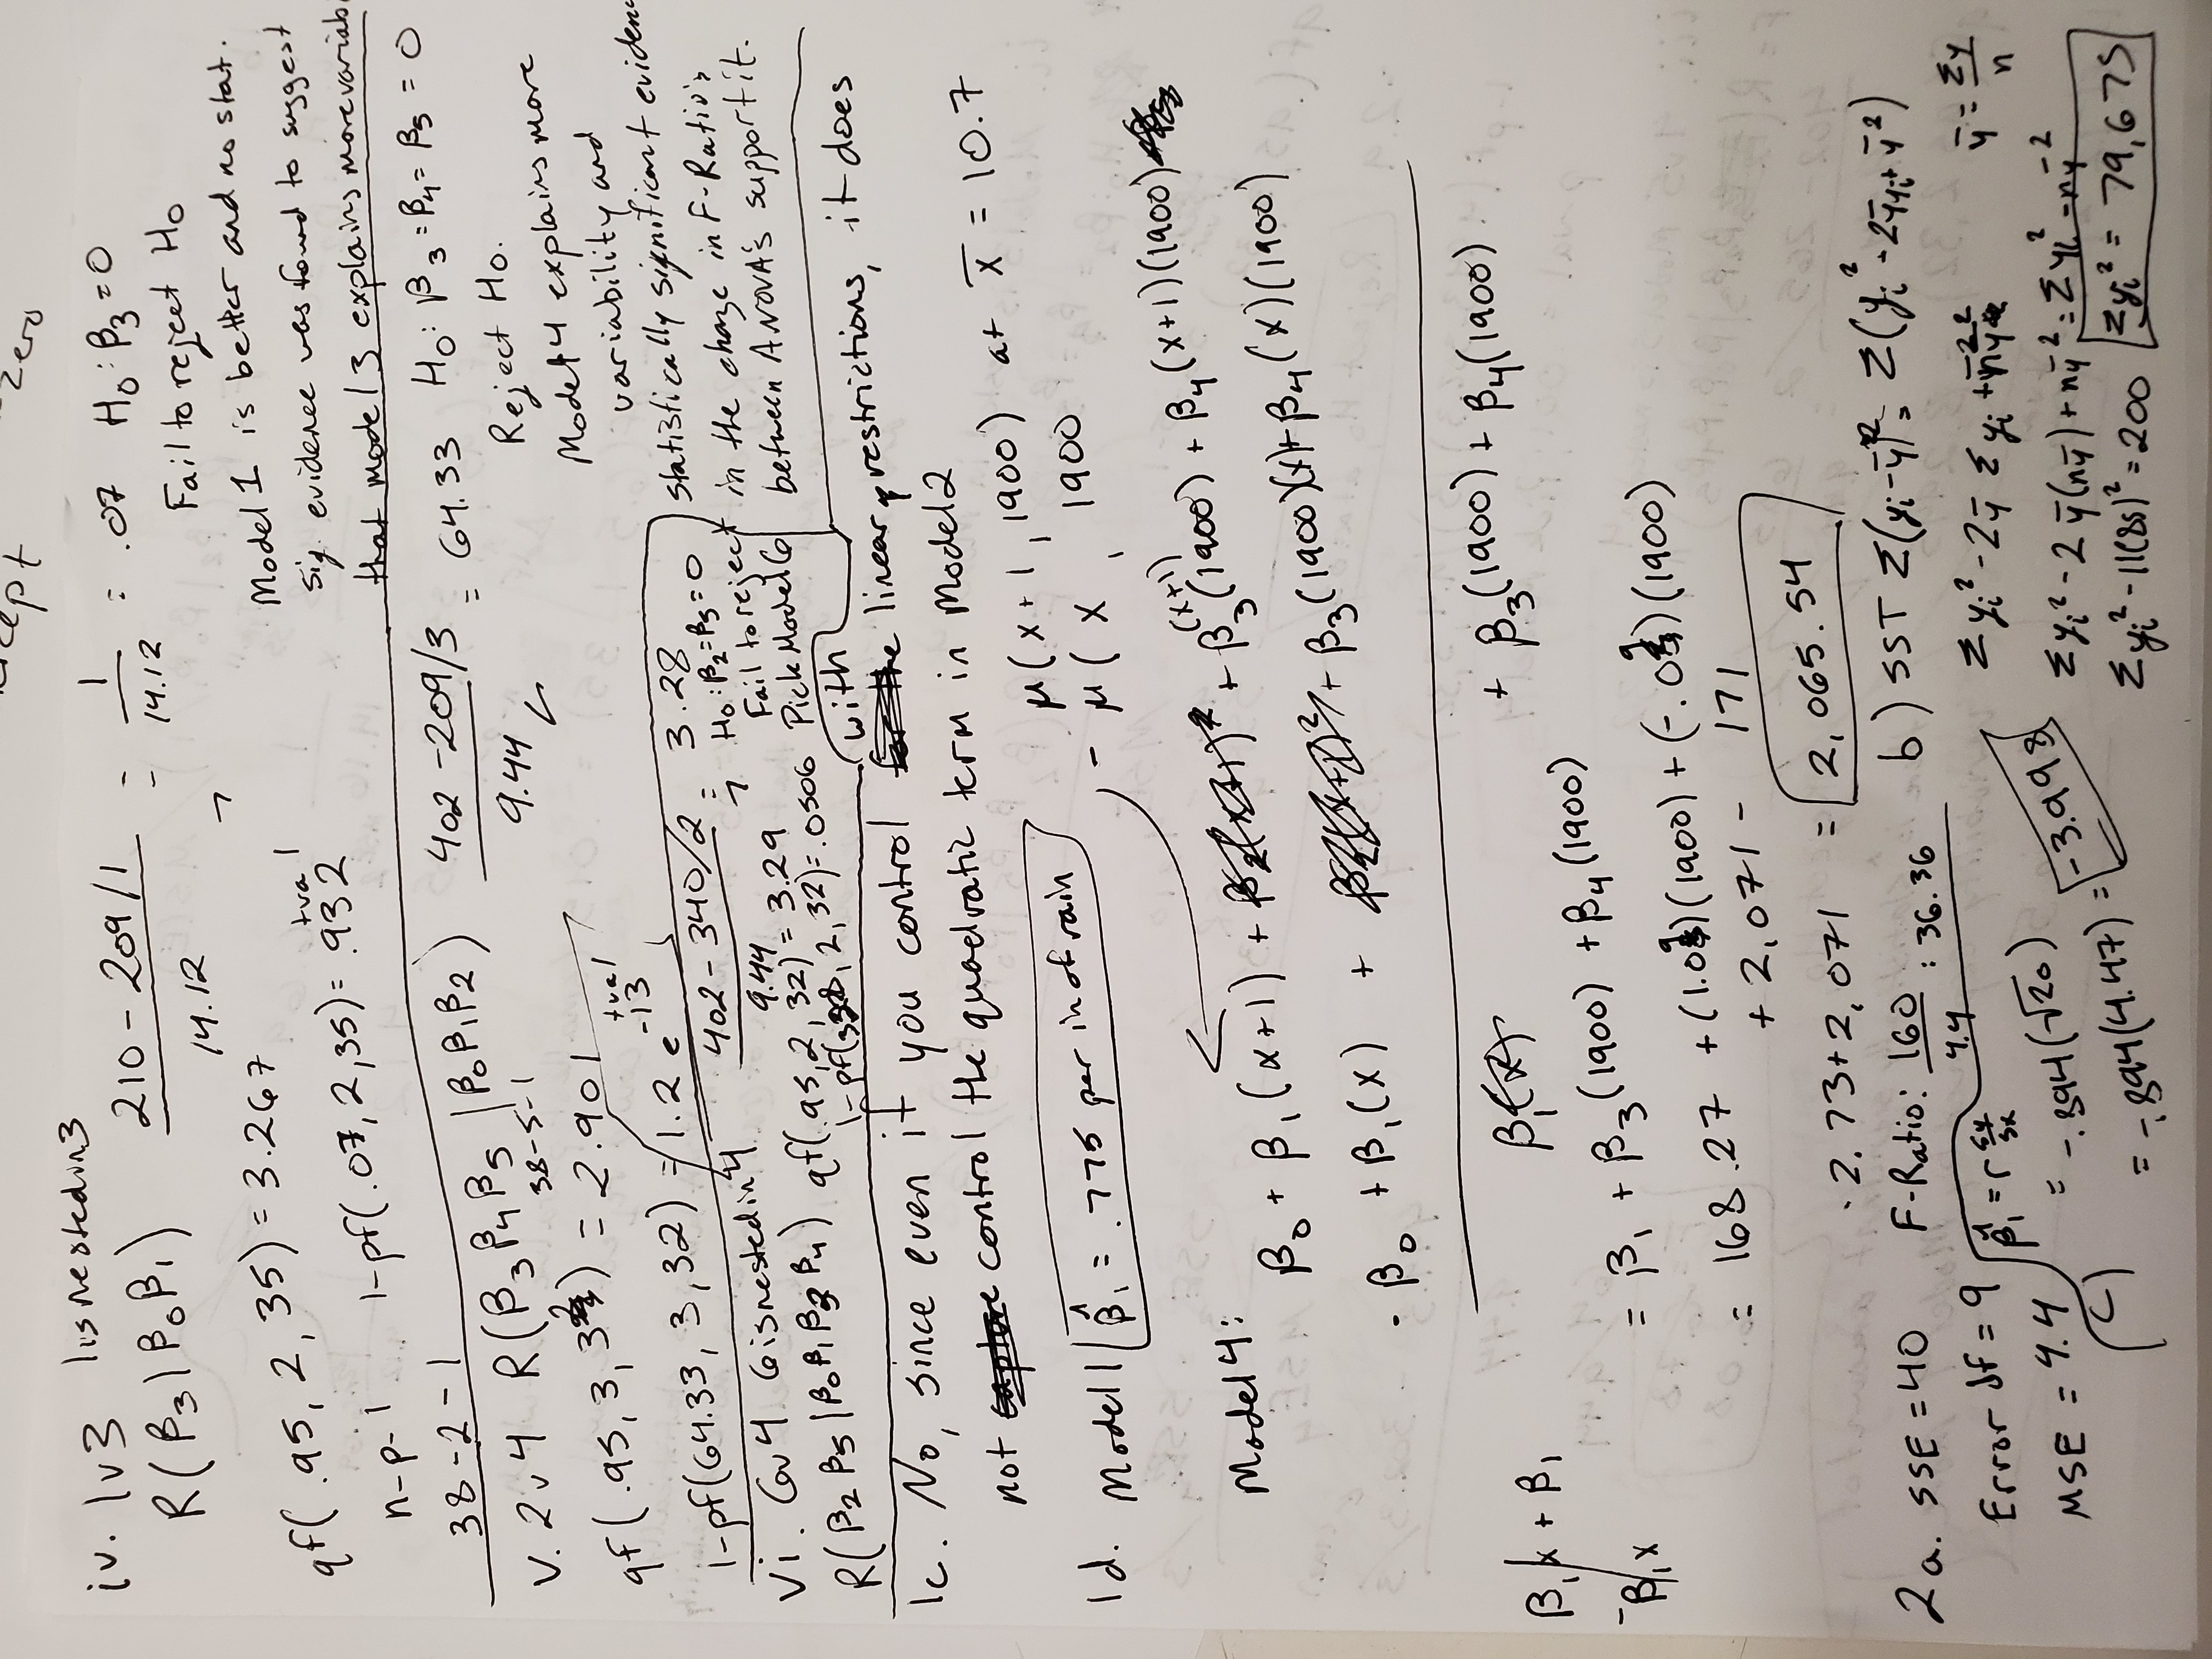 zero
iv. 1v3 1 is nested in 3
R(β₃|β₀β₁) 210 - 209/1 / 14.12 = 1/14.12 = .07 H₀: β₃ = 0
Fail to reject H₀
qf(.95, 2, 35) = 3.267
Model 1 is better and no stat.
sig. evidence was found to suggest
that model 3 explains more variab
n-p-1 1-pf(.07, 2, 35) = .932
38-2-1
v. 2v4 R(β₃β₄β₅|β₀β₁β₂) 402 - 209/3 / 9.44 = 64.33 H₀: β₃ = β₄ = β₅ = 0
38-5-1
Reject H₀.
Model 4 explains more
variability and
statistically significant evidenc
in the change in F-Ratio's
between ANOVA's support it.
qf(.95, 3, 32) = 2.901
1-pf(64.33, 3, 32) = 1.2 e⁻¹³
vi. 6v4 6 is nested in 4 402 - 340/2 / 9.44 = 3.28
H₀: β₂ = β₅ = 0
Fail to reject
Pick Model 6
R(β₂ β₅|β₀ β₁ β₃ β₄) qf(.95, 2, 32) = 3.29
1-pf(3.28, 2, 32) = .0506
1c. No, since even if you control with linear restrictions, it does
not control the quadratic term in Model 2
1d. Model 1 β̂₁ = .775 per in of rain
μ(x+1, 1900) at x̄ = 10.7
- μ(x, 1900
Model 4:
β₀ + β₁(x+1) + β₃(x+1)(1900) + β₄(x+1)(1900)
- β₀ + β₁(x) + β₃(1900)(x) + β₄(x)(1900)
β₁ + β₃(1900) + β₄(1900)
β₁x + β₁
- β₁x
= β₁ + β₃(1900) + β₄(1900)
= 168.27 + (1.09)(1900) + (-.09)(1900)
+ 2,071 - 171
-2.73 + 2,071 = 2,065.54
2a. SSE = 40 F-Ratio: 160/4.4 : 36.36
Error df = 9
MSE = 4.4
b) SST Σ(yᵢ-ȳ)² = Σ(yᵢ² - 2ȳyᵢ + ȳ²)
Σyᵢ² - 2ȳ Σyᵢ + nȳ² ȳ = Σy/n
Σyᵢ² - 2ȳ(nȳ) + nȳ² = Σyᵢ² - nȳ²
Σyᵢ² - 11(85)² = 200 Σyᵢ² = 79,675
c) β̂₁ = r sy/sx
= -.894(√20)
= -.894(4.47) = -3.998